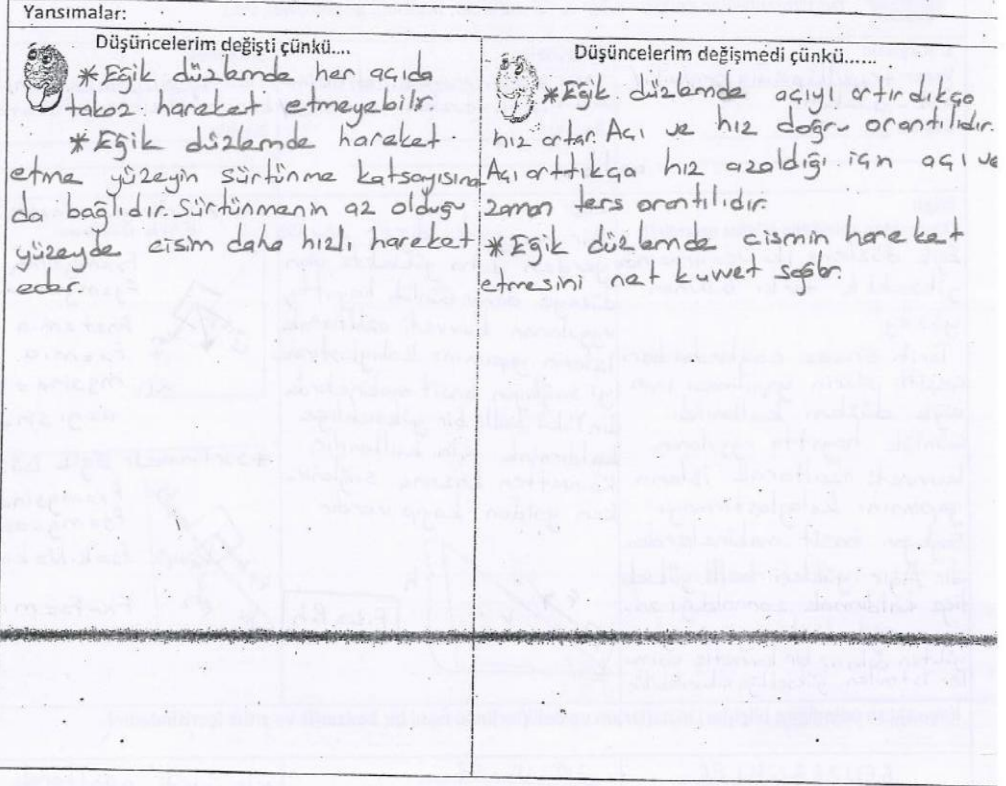 Yansımalar:
Düşüncelerim değişti çünkü....
*Eğik düzlemde her açıda
takoz hareket etmeyebilir.
*Eğik düzlemde hareket
etme yüzeyin sürtünme katsayısına
da bağlıdır. Sürtünmenin az olduğu
yüzeyde cisim daha hızlı hareket
eder.
Düşüncelerim değişmedi çünkü......
*Eğik düzlemde açıyı artırdıkça
hız artar. Açı ve hız doğru orantılıdır.
Açı arttıkça hız azaldığı için açı ve
zaman ters orantılıdır.
*Eğik düzlemde cismin hareket
etmesini net kuvvet sağlar.